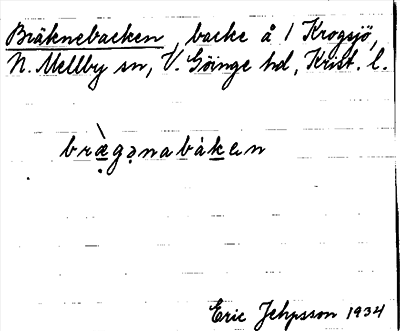 Bräknebacken, backe å 1 Krogsjö,
N. Mellby sn, V. Göinge hd, Krist. l.
bræ̀gənabàken
Eric Jehpsson 1934